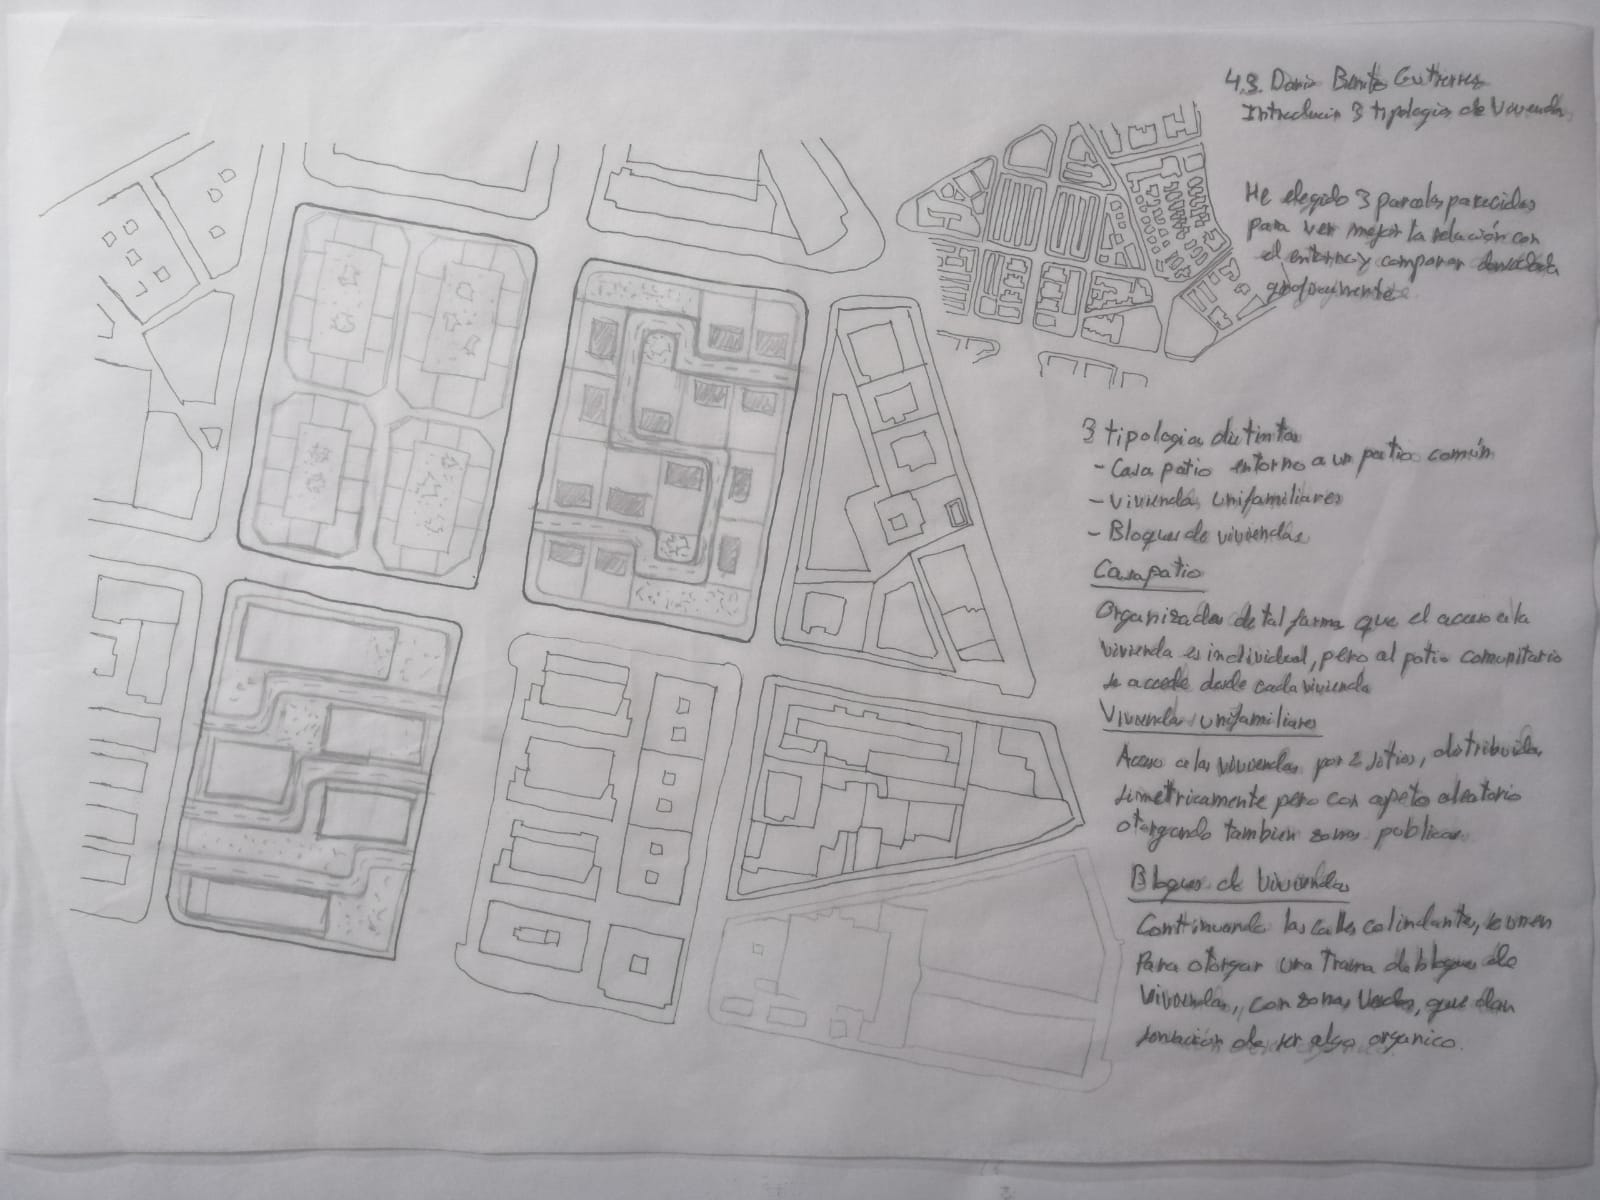 4.3. Dario Benito Gutierrez
Introducir 3 tipologias de Vivienda
He elegido 3 parcelas parecidas
para ver mejor la relación con
el entorno y comparar
graficamente
3 tipologia distintas
- Casa patio entorno a un patio común
- Viviendas unifamiliares
- Bloques de viviendas
Casa patio
Organizadas de tal forma que el acceso a la
vivienda es individual, pero al patio comunitario
se accede desde cada vivienda
Viviendas unifamiliares
Acceso a las viviendas por 2 sitios, distribuida
simetricamente pero con aspeto aleatorio
otorgando tambien zonas publicas
Bloques de Viviendas
Continuando las calles colindantes, se unen
Para otorgar una trama de bloques de
Viviendas, con zonas Verdes, que dan
sensación de ser algo organico.